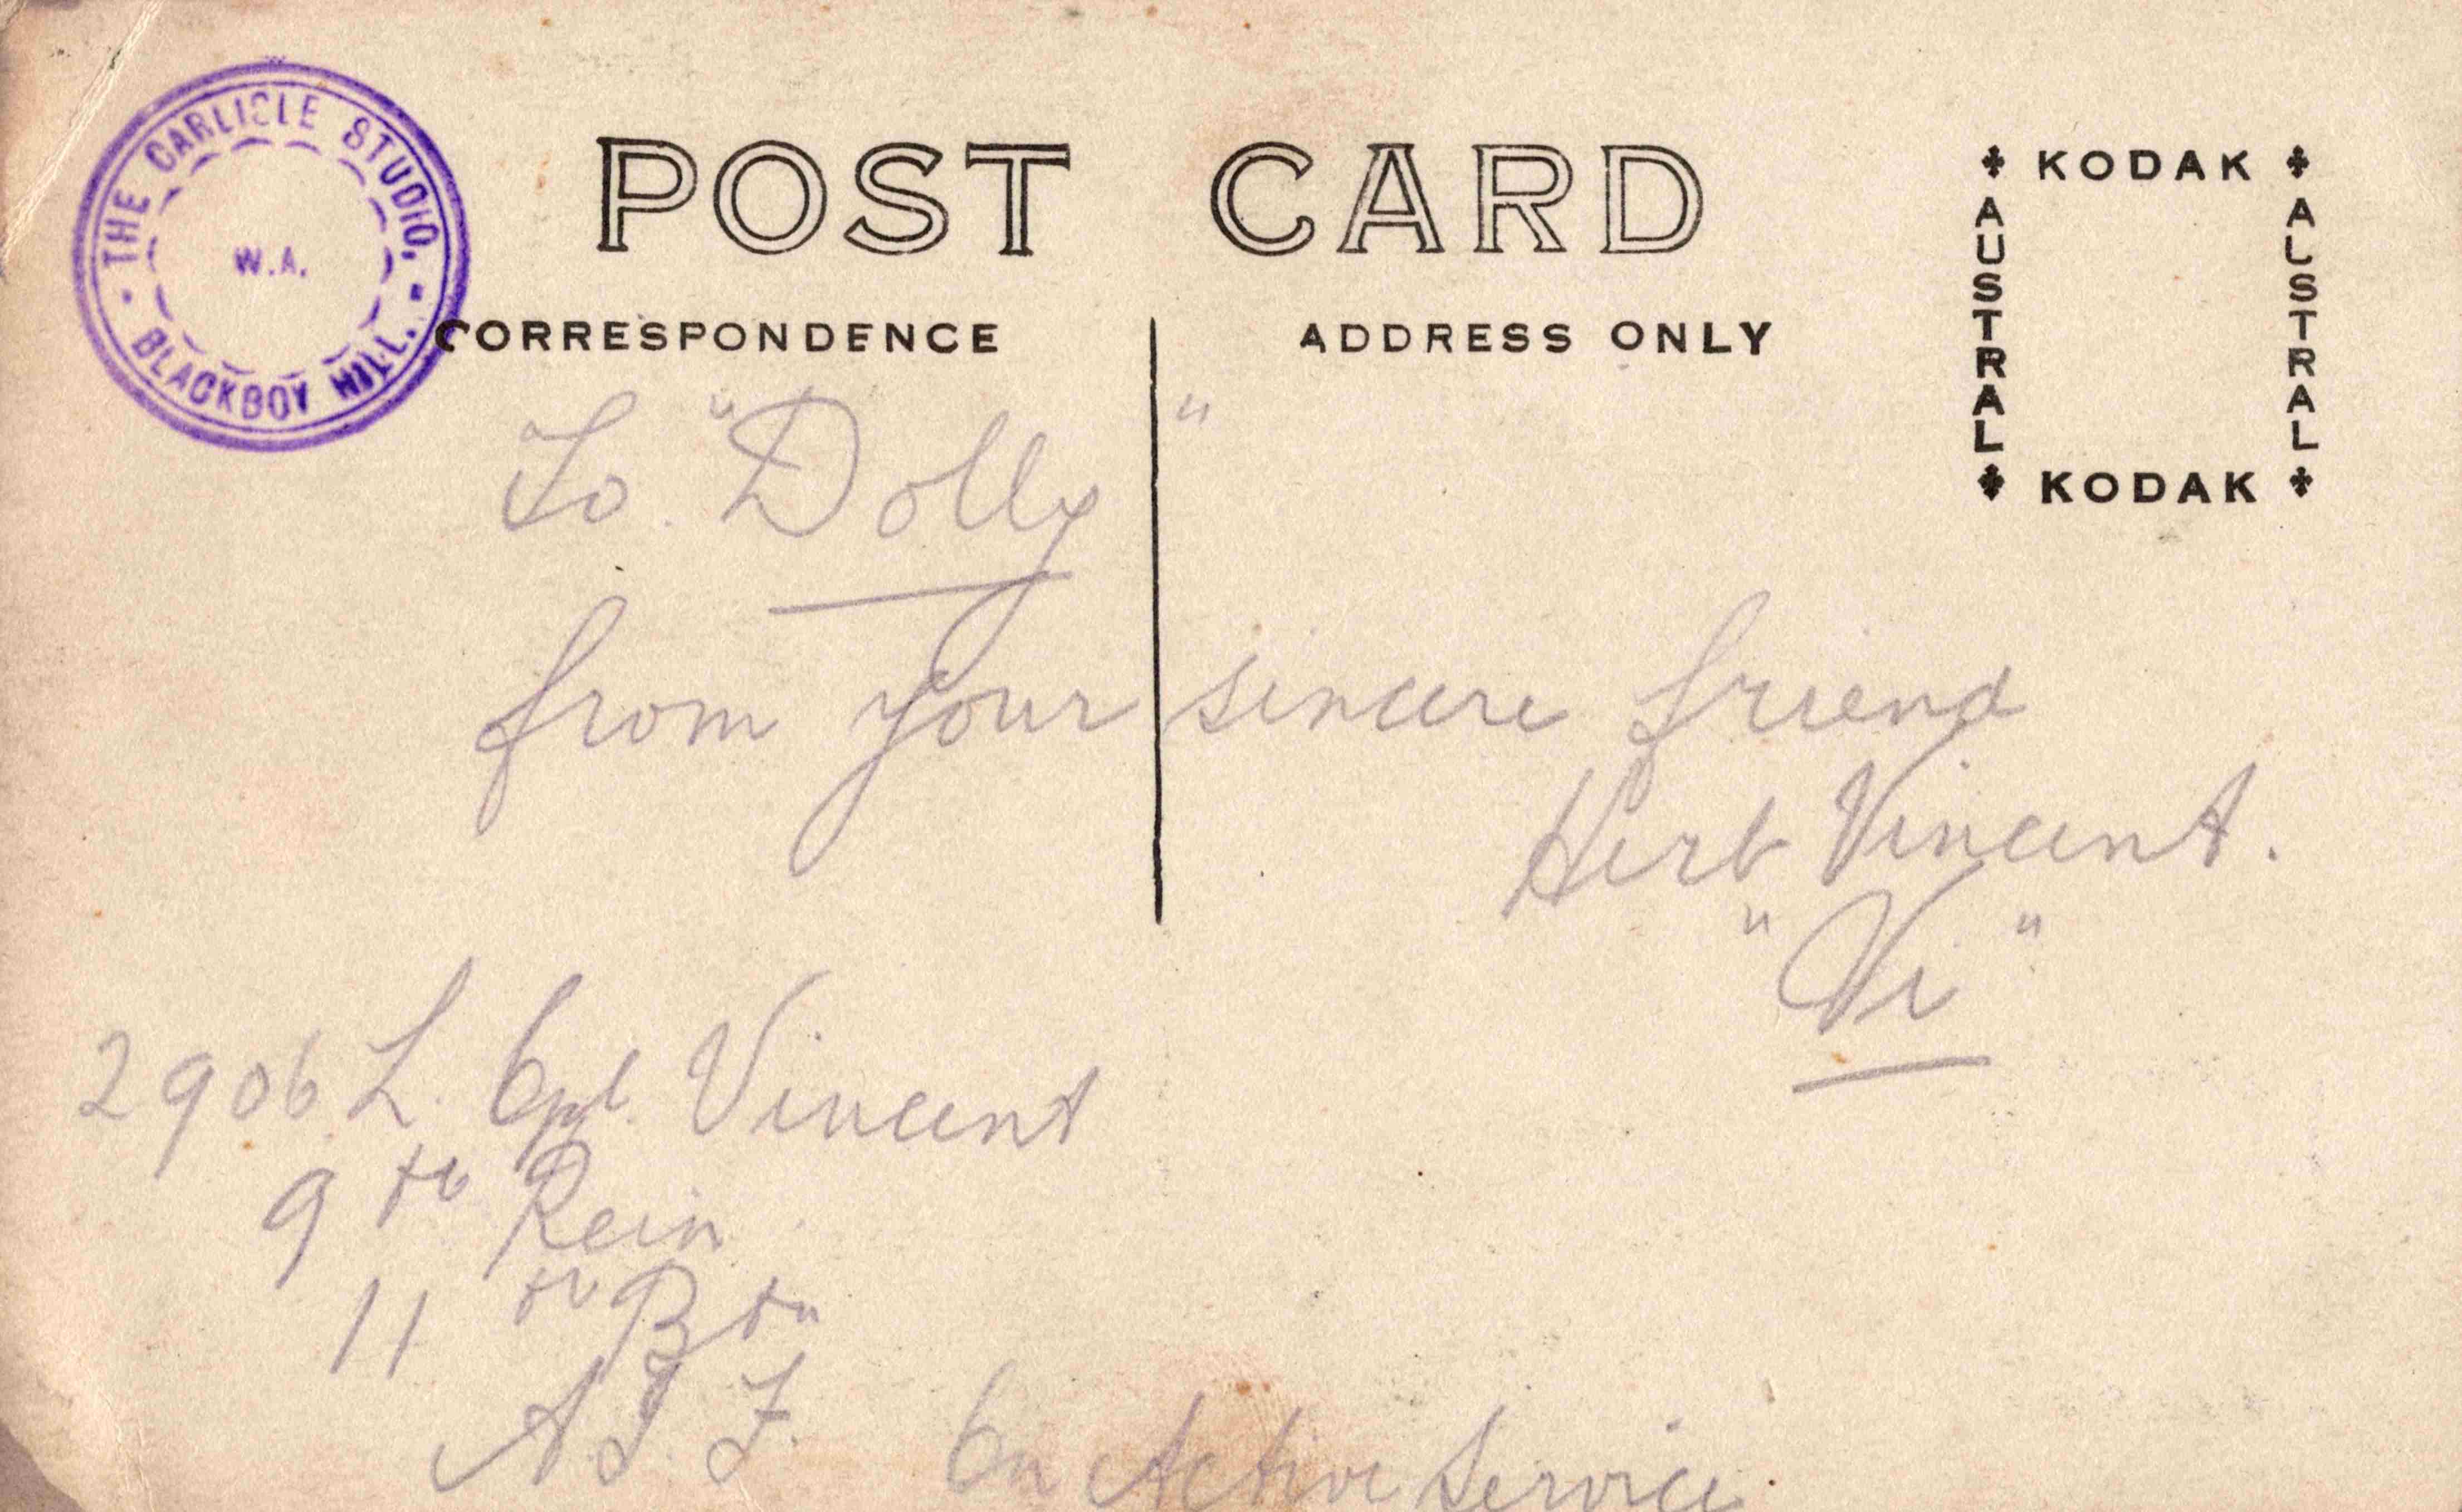 THE CARLISLE STUDIO,
W.A.
BLACKBOY HILL.
POST CARD
CORRESPONDENCE
ADDRESS ONLY
KODAK
AUSTRAL
ALSTRAL
KODAK
To "Dolly"
from your sincere friend
Herb Vincent.
"Vi"
2906 L. Cpl. Vincent
9th Rein
11th Btn
A.I.F. On Active Service.